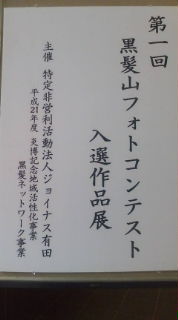 第一回
黒髪山フォトコンテスト
入選作品展
主催 特定非営利活動法人ジョイナス有田
平成21年度 炎博記念地域活性化事業
黒髪ネットワーク事業